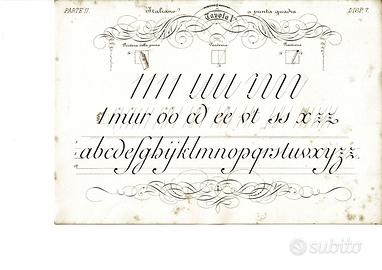 PARTE II. Italiano a punta quadra DISP. 7.
Tavola I.
Posizione della penna Posizione
1 mur öo cd ee vt ss x z z
abcdefghijklmnopqrstuvxyz z
subito